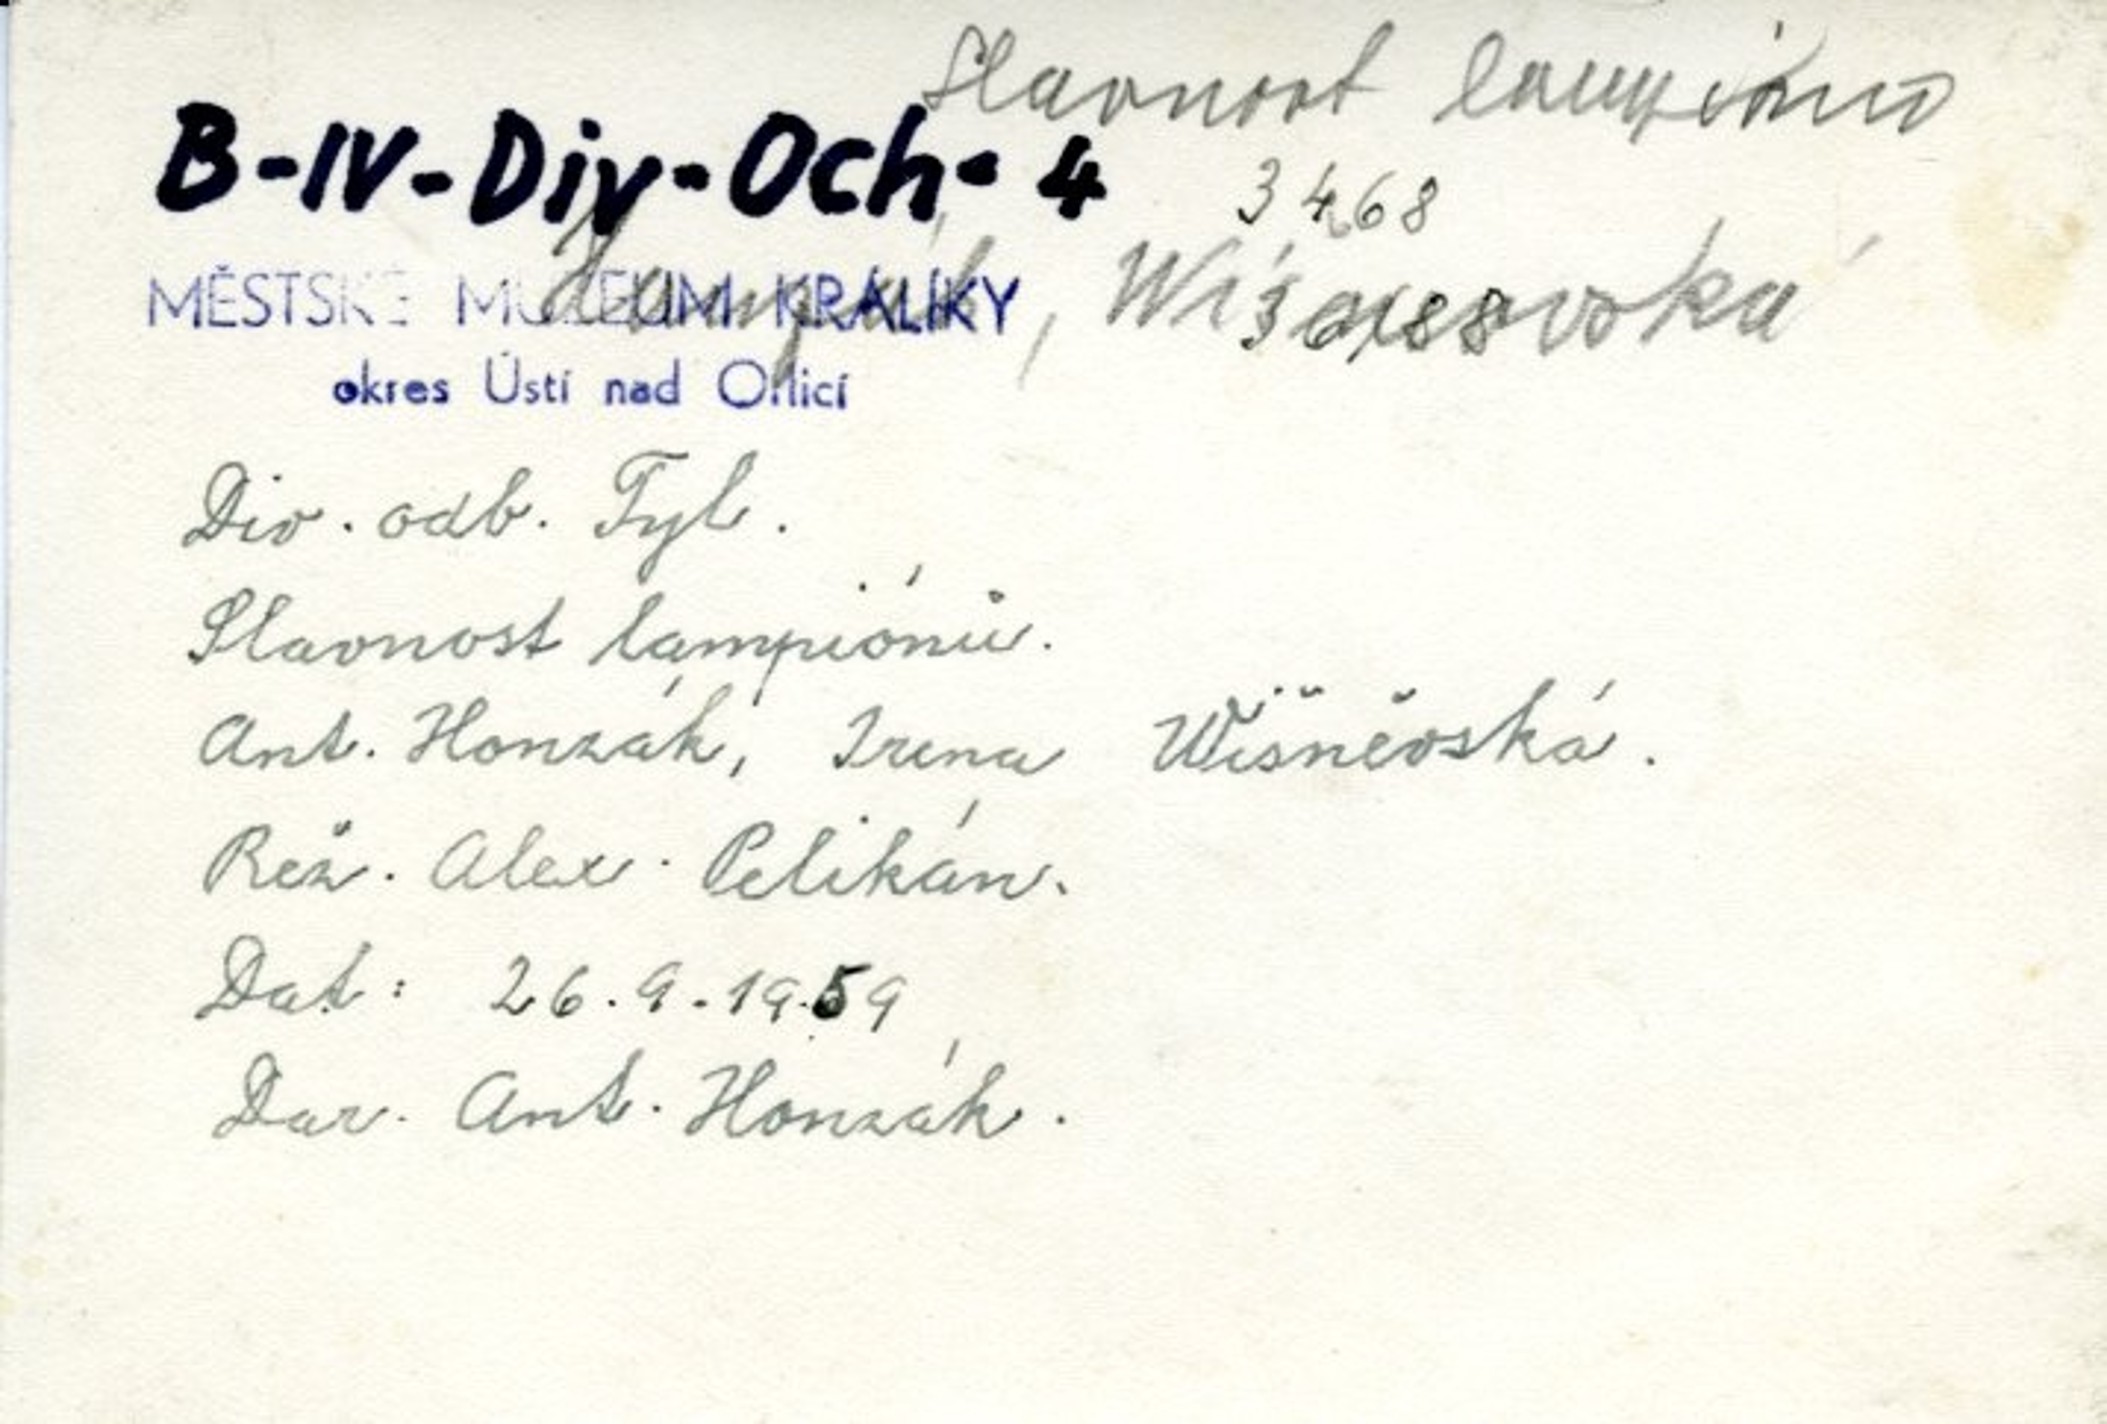 Slavnost lampionů
B-IV-Div-Och-4
3468
MĚSTSKÉ MUZEUM KRÁLÍKY
okres Ústí nad Orlicí
Div. odb. Tyl.
Slavnost lampiónů.
Ant. Honzák, Irena Wišněvská.
Rež. Alex. Pelikán.
Dat: 26.9.1959
Dar. Ant. Honzák.